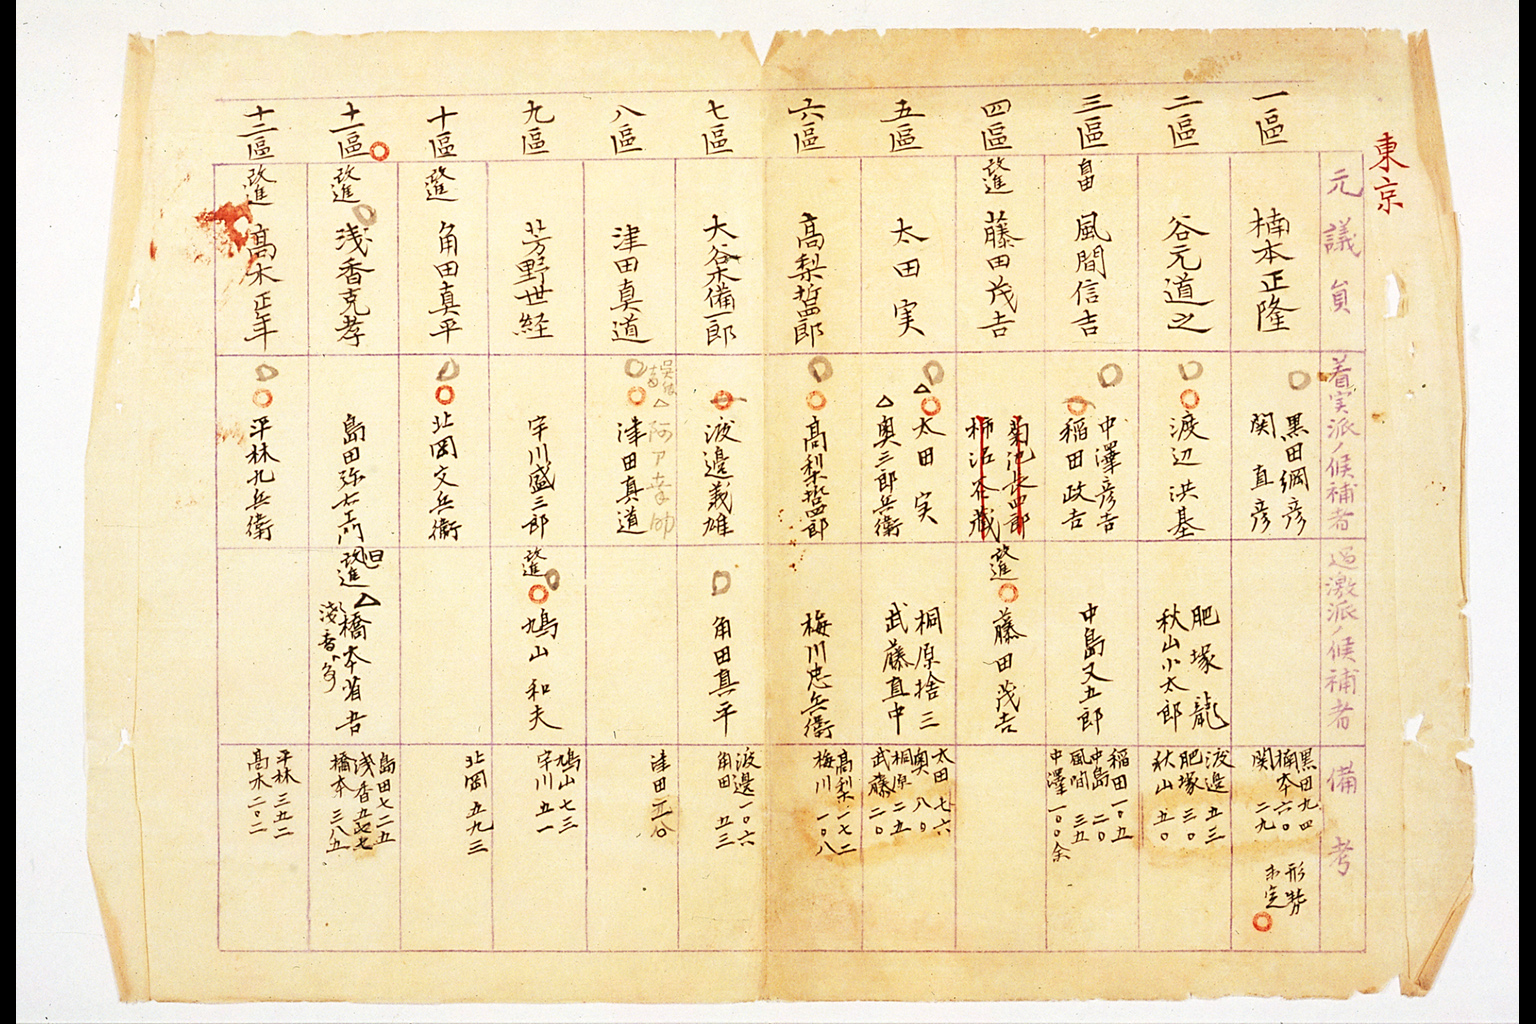 東京
元議員
着実派ノ候補者
過激派ノ候補者
備考
一區
楠本正隆
黒田綱彦
関直彦
黒田九四
楠本六〇
関二九
形勢
未定
二區
谷元道之
渡辺洪基
肥塚龍
秋山小太郎
渡邊五三
肥塚三〇
秋山五〇
三區
自由
風間信吉
中澤彦吉
稲田政吉
中島又五郎
稲田一〇五
中島二〇
風間三五
中澤一〇〇余
四區
改進
藤田茂吉
菊池長四郎
柿沼谷蔵
改進
藤田茂吉
五區
太田実
△太田実
△奥三郎兵衛
桐原捨三
武藤直中
太田七六
奥八〇
桐原二五
武藤二〇
六區
高梨哲四郎
高梨哲四郎
梅川忠兵衛
高梨一七二
梅川一〇八
七區
大谷木備一郎
渡邊義雄
角田真平
渡邊一〇六
角田五三
八區
津田真道
△阿部幸助
津田真道
津田
九區
芳野世経
宇川盛三郎
改進
鳩山和夫
鳩山七三
宇川五一
十區
改進
角田真平
北岡文兵衞
北岡五九三
十一區
改進
浅香克孝
島田弥右エ門
旧
改進
△橋本省吾
浅香
島田七二五
浅香五七七
橋本三八五
十二區
改進
高木正年
平林九兵衛
平林三五二
高木二〇二